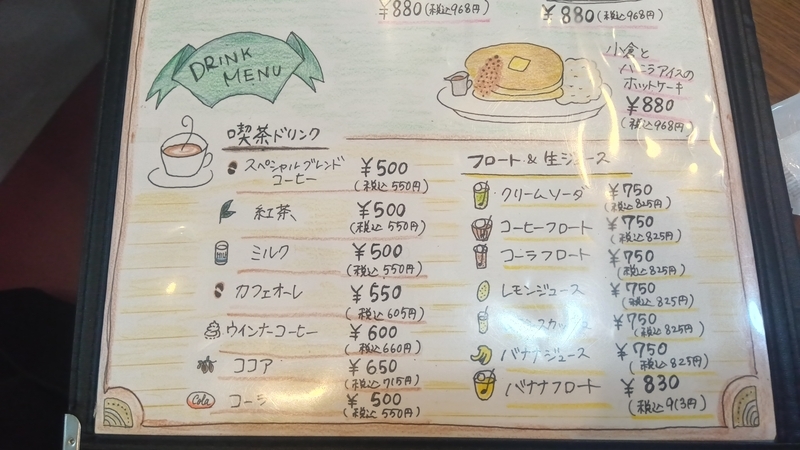 ¥880(税込968円)
¥880(税込968円)
DRINK
MENU
小倉と
バニラアイスの
ホットケーキ
¥880
(税込968円)
喫茶ドリンク
スペシャルブレンド
コーヒー ¥500
(税込550円)
紅茶 ¥500
(税込550円)
ミルク ¥500
(税込550円)
カフェオーレ ¥550
(税込605円)
ウインナーコーヒー ¥600
(税込660円)
ココア ¥650
(税込715円)
Cola コーラ ¥500
(税込550円)
フロート&生ジュース
クリームソーダ ¥750
(税込825円)
コーヒーフロート ¥750
(税込825円)
コーラフロート ¥750
(税込825円)
レモンジュース ¥750
(税込825円)
¥750
(税込825円)
バナナジュース ¥750
(税込825円)
バナナフロート ¥830
(税込913円)